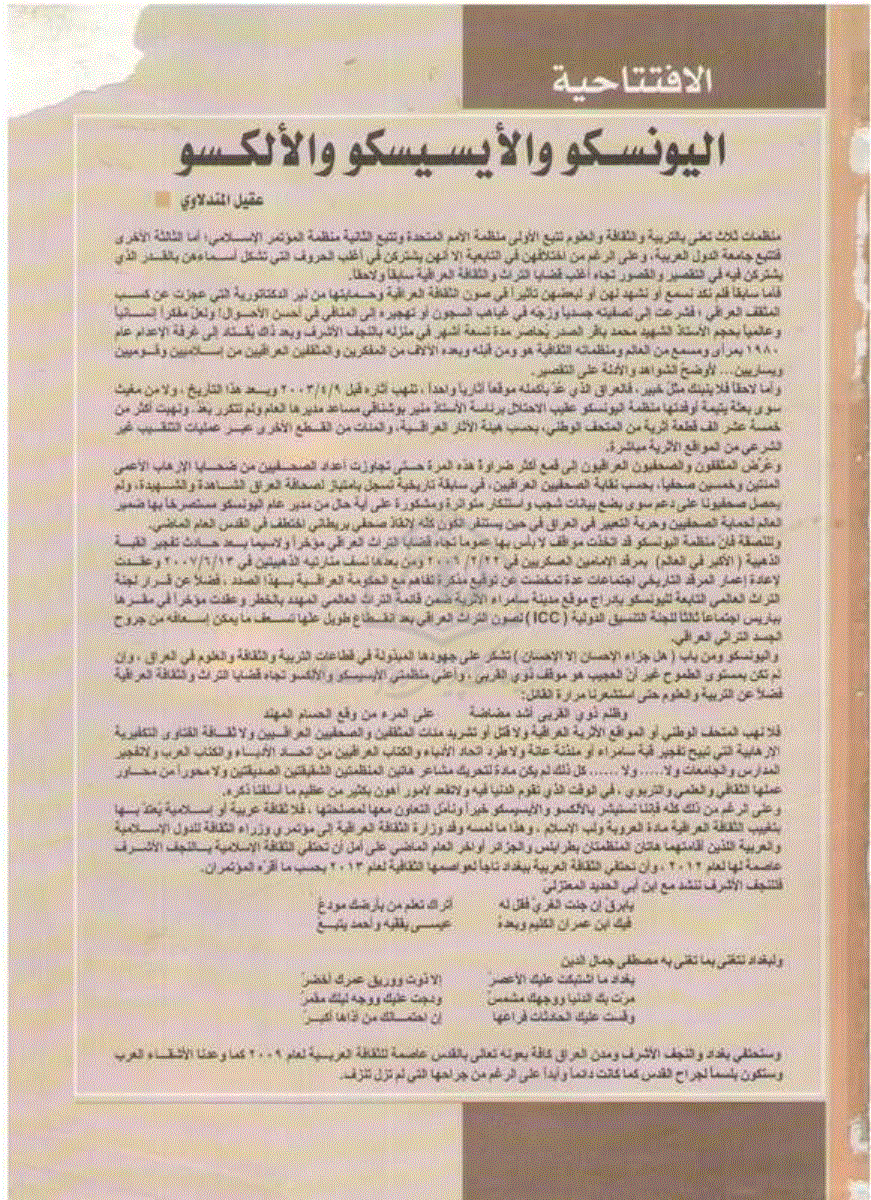 الافتتاحية
اليونسكو والأيسيسكو والألكسو
عقيل المندلاوي
منظمات ثلاث تعنى بالتربية والثقافة والعلوم تتبع الأولى منظمة الأمم المتحدة وتتبع الثانية منظمة المؤتمر الإسلامي، أما الثالثة الأخرى
فتتبع جامعة الدول العربية، وعلى الرغم من اختلافهن في التابعية إلا أنهن يشتركن في أغلب الحروف التي تشكل أسماءهن بالقدر الذي
يشتركن فيه في التقصير والقصور تجاه أغلب قضايا التراث والثقافة العراقية سابقاً ولاحقاً.
فأما سابقاً فلم نكد نسمع أو نشهد لهن أو لبعضهن تأثيراً في صون الثقافة العراقية وحمايتها من نير الدكتاتورية التي عجزت عن كسب
المثقف العراقي ؛ فشرعت إلى تصفيته جسدياً وزجه في غياهب السجون أو تهجيره إلى المنافي في أحسن الأحوال! ولعل مفكراً إنسانياً
وعالمياً بحجم الأستاذ الشهيد محمد باقر الصدر يُحاصر مدة تسعة أشهر في منزله بالنجف الأشرف وبعد ذلك يُقتاد إلى غرفة الإعدام عام
١٩٨٠ بمرأى ومسمع من العالم ومنظماته الثقافية هو ومن قبله وبعده الآلاف من المفكرين والمثقفين العراقيين من إسلاميين وقوميين
ويساريين... لأوضح الشواهد والأدلة على التقصير.
وأما لاحقاً فلا ينبئك مثل خبير ، فالعراق الذي عُدّ بأكمله موقعاً آثارياً واحداً ، تنهب آثاره قبل ٢٠٠٣/٤/٩ وبعد هذا التاريخ ، ولا من مغيث
سوى بعثة يتيمة أوفدتها منظمة اليونسكو عقيب الاحتلال برئاسة الأستاذ منير بوشناقي مساعد مديرها العام ولم تتكرر بعدُ، ونهبت أكثر من
خمسة عشر ألف قطعة أثرية من المتحف الوطني، بحسب هيئة الآثار العراقية، والمئات من القطع الأخرى عبر عمليات التنقيب غير
الشرعي من المواقع الأثرية مباشرة.
وعُرّض المثقفون والصحفيون العراقيون إلى قمع أكثر ضراوةً هذه المرة حتى تجاوزت أعداد الصحفيين من ضحايا الإرهاب الأعمى
المئتين وخمسين صحفياً، بحسب نقابة الصحفيين العراقيين، في سابقة تاريخية تسجل بامتياز لصحافة العراق الشاهدة والشهيدة، ولم
يحصل صحفيونا على دعم سوى بضع بيانات شجب واستنكار متواترة ومشكورة على أية حال من مدير عام اليونسكو مستصرخاً بها ضمير
العالم لحماية الصحفيين وحرية التعبير في العراق في حين يستنفر الكون كله لإنقاذ صحفي بريطاني اختطف في القدس العام الماضي.
وللنصفة فإن منظمة اليونسكو قد اتخذت مواقف لا بأس بها عموماً تجاه قضايا التراث العراقي مؤخراً ولاسيما بعد حادث تفجير القبة
الذهبية (الأكبر في العالم) بمرقد الإمامين العسكريين في ومن بعدها نسف منارتيه الذهبيتين في ٢٠٠٧/٦/١٣ وعقدت
لإعادة إعمار المرقد التاريخي اجتماعات عدة تمخضت عن توقيع مذكرة تفاهم مع الحكومة العراقية بهذا الصدد ، فضلاً عن قرار لجنة
التراث العالمي التابعة لليونسكو بإدراج موقع مدينة سامراء الأثرية ضمن قائمة التراث العالمي المهدد بالخطر وعقدت مؤخراً في مقرها
بباريس اجتماعاً ثالثاً للجنة التنسيق الدولية (ICC) لصون التراث العراقي بعد انقطاع طويل علها تسعف ما يمكن إسعافه من جروح
الجسد التراثي العراقي.
واليونسكو ومن باب (هل جزاء الإحسان إلا الإحسان) تشكر على جهودها المبذولة في قطاعات التربية والثقافة والعلوم في العراق ، وإن
لم تكن بمستوى الطموح غير أن العجيب هو موقف ذوي القربى ، وأعني منظمتي الأيسيسكو والألكسو تجاه قضايا التراث والثقافة العراقية
فضلاً عن التربية والعلوم حتى استشعرنا مرارة القائل:
وظلم ذوي القربى أشد مضاضة على المرء من وقع الحسام المهند
فلا نهب المتحف الوطني أو المواقع الأثرية العراقية ولا قتل أو تشريد مئات المثقفين والصحفيين العراقيين ولا ثقافة الفتاوى التكفيرية
الإرهابية التي تبيح تفجير قبة سامراء أو مئذنة عانة ولا طرد اتحاد الأدباء والكتاب العراقيين من اتحاد الأدباء والكتاب العرب ولا تفجير
المدارس والجامعات ولا..... ولا...... كل ذلك لم يكن مادة لتحريك مشاعر هاتين المنظمتين الشقيقتين الصديقتين ولا محوراً من محاور
عملها الثقافي والعلمي والتربوي ، في الوقت الذي تقوم الدنيا فيه ولا تقعد لأمور أهون بكثير من عظيم ما أسلفنا ذكره.
وعلى الرغم من ذلك كله فإننا نستبشر بالألكسو والأيسيسكو خيراً ونأمل التعاون معها لمصلحتها ، فلا ثقافة عربية أو إسلامية يُعتدّ بها
بتغييب الثقافة العراقية مادة العروبة ولب الإسلام ، وهذا ما لمسه وفد وزارة الثقافة العراقية إلى مؤتمري وزراء الثقافة للدول الإسلامية
والعربية اللذين أقامتهما هاتان المنظمتان بطرابلس والجزائر أواخر العام الماضي على أمل أن تحتفي الثقافة الإسلامية بالنجف الأشرف
عاصمة لها لعام ٢٠١٢ ، وأن تحتفي الثقافة العربية ببغداد تاجاً لعواصمها الثقافية لعام ٢٠١٣ بحسب ما أقره المؤتمران.
فللنجف الأشرف ننشد مع ابن أبي الحديد المعتزلي
يابرق إن جئت الغري فقل له أتراك تعلم من بأرضك مودع
فيك ابن عمران الكليم وبعده عيسى يقفيه وأحمد يتبع
ولبغداد نتغنى بما تغنى به مصطفى جمال الدين
بغداد ما اشتبكت عليك الأعصر إلا ذوت ووريق عمرك أخضر
مرت بك الدنيا ووجهك مشمس ودجت عليك ووجه ليلك مقمر
وقست عليك الحادثات فراعها إن احتمالك من أذاها أكبر
وستحتفي بغداد والنجف الأشرف ومدن العراق كافة بعونه تعالى بالقدس عاصمة للثقافة العربية لعام ٢٠٠٩ كما وعدنا الأشقاء العرب
وستكون بلسماً لجراح القدس كما كانت دائماً وأبداً على الرغم من جراحها التي لم تزل تنزف.